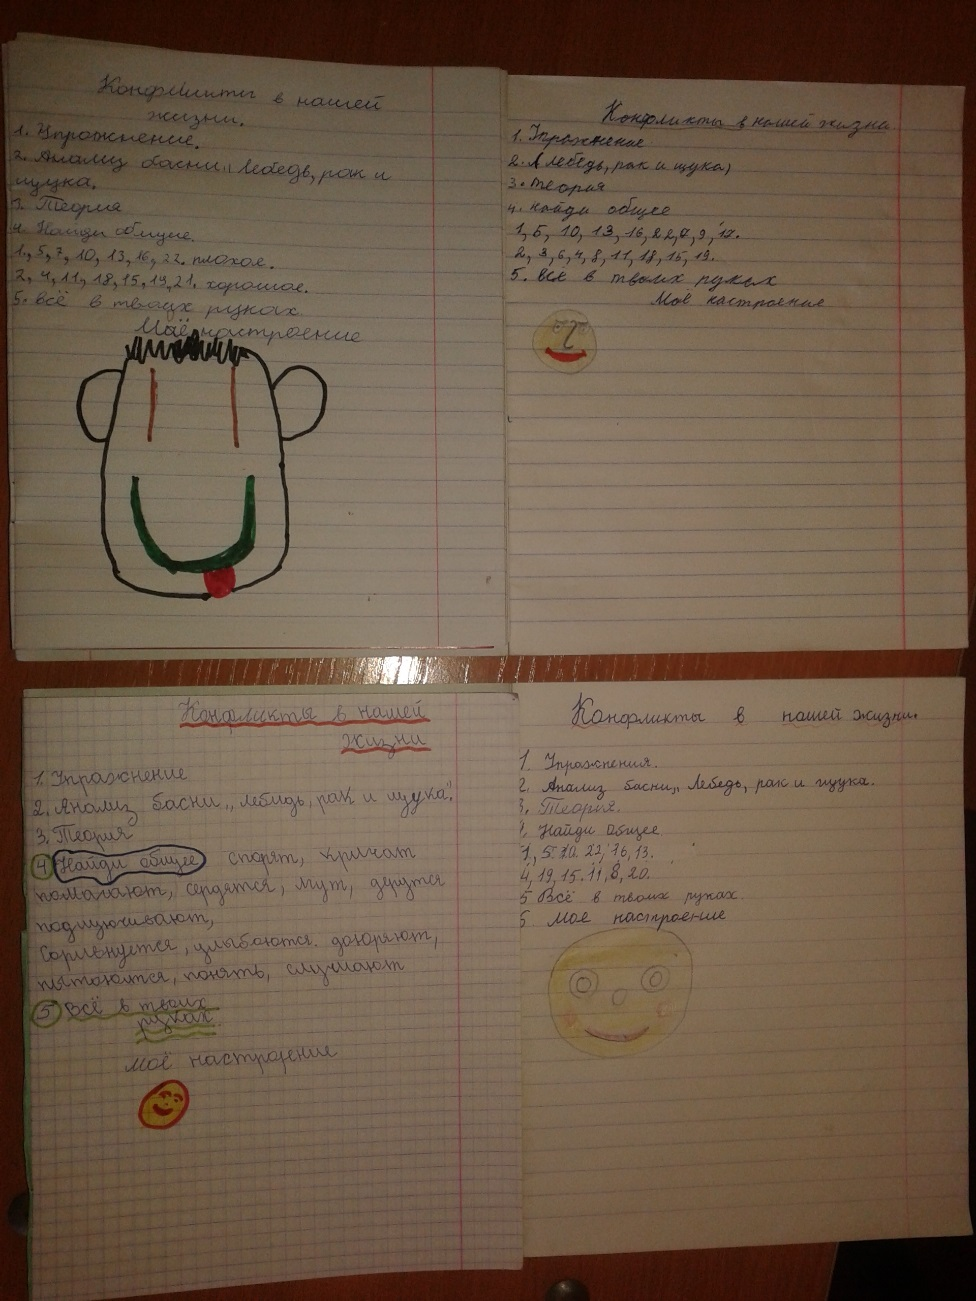 Конфликты в нашей
жизни.
1. Упражнений.
2. Анализ басни „Лебедь, рак и
щука.
3. Теория
4. Найди общие.
1, 5, 7, 10, 13, 16, 22. плохое.
2, 4, 11, 18, 15, 19, 21. хорошое.
5. всё в твоих руках
Моё настроение
Конфликты в нашей жизни
1. Упражнение
2. (лебедь, рак и щука)
3. теория
4. найди общее
1, 5, 10, 13, 16, 22, 7, 9, 17.
2, 3, 6, 4, 8, 11, 18, 15, 19.
5. всё в твоих руках
Моё настроение
Конфликты в нашей
жизни
1. Упражнение
2. Анализ басни „лебидь, рак и щука".
3. Теория
4 Найди общее спорят, кричат
помагают, сердятся, лгут, дерутся
подшучивают,
улыбаются.
пытаются, понять, слушают
5 Всё в твоих
руках.
Моё настроение
Конфликты в нашей жизни.
1. Упражнения.
2. Анализ басни „Лебедь, рак и щука.
3. Теория.
4. Найди общее.
1, 5. 10. 22, 16, 13.
4, 19, 15. 11, 8, 20.
5 Всё в твоих руках.
Моё настроение